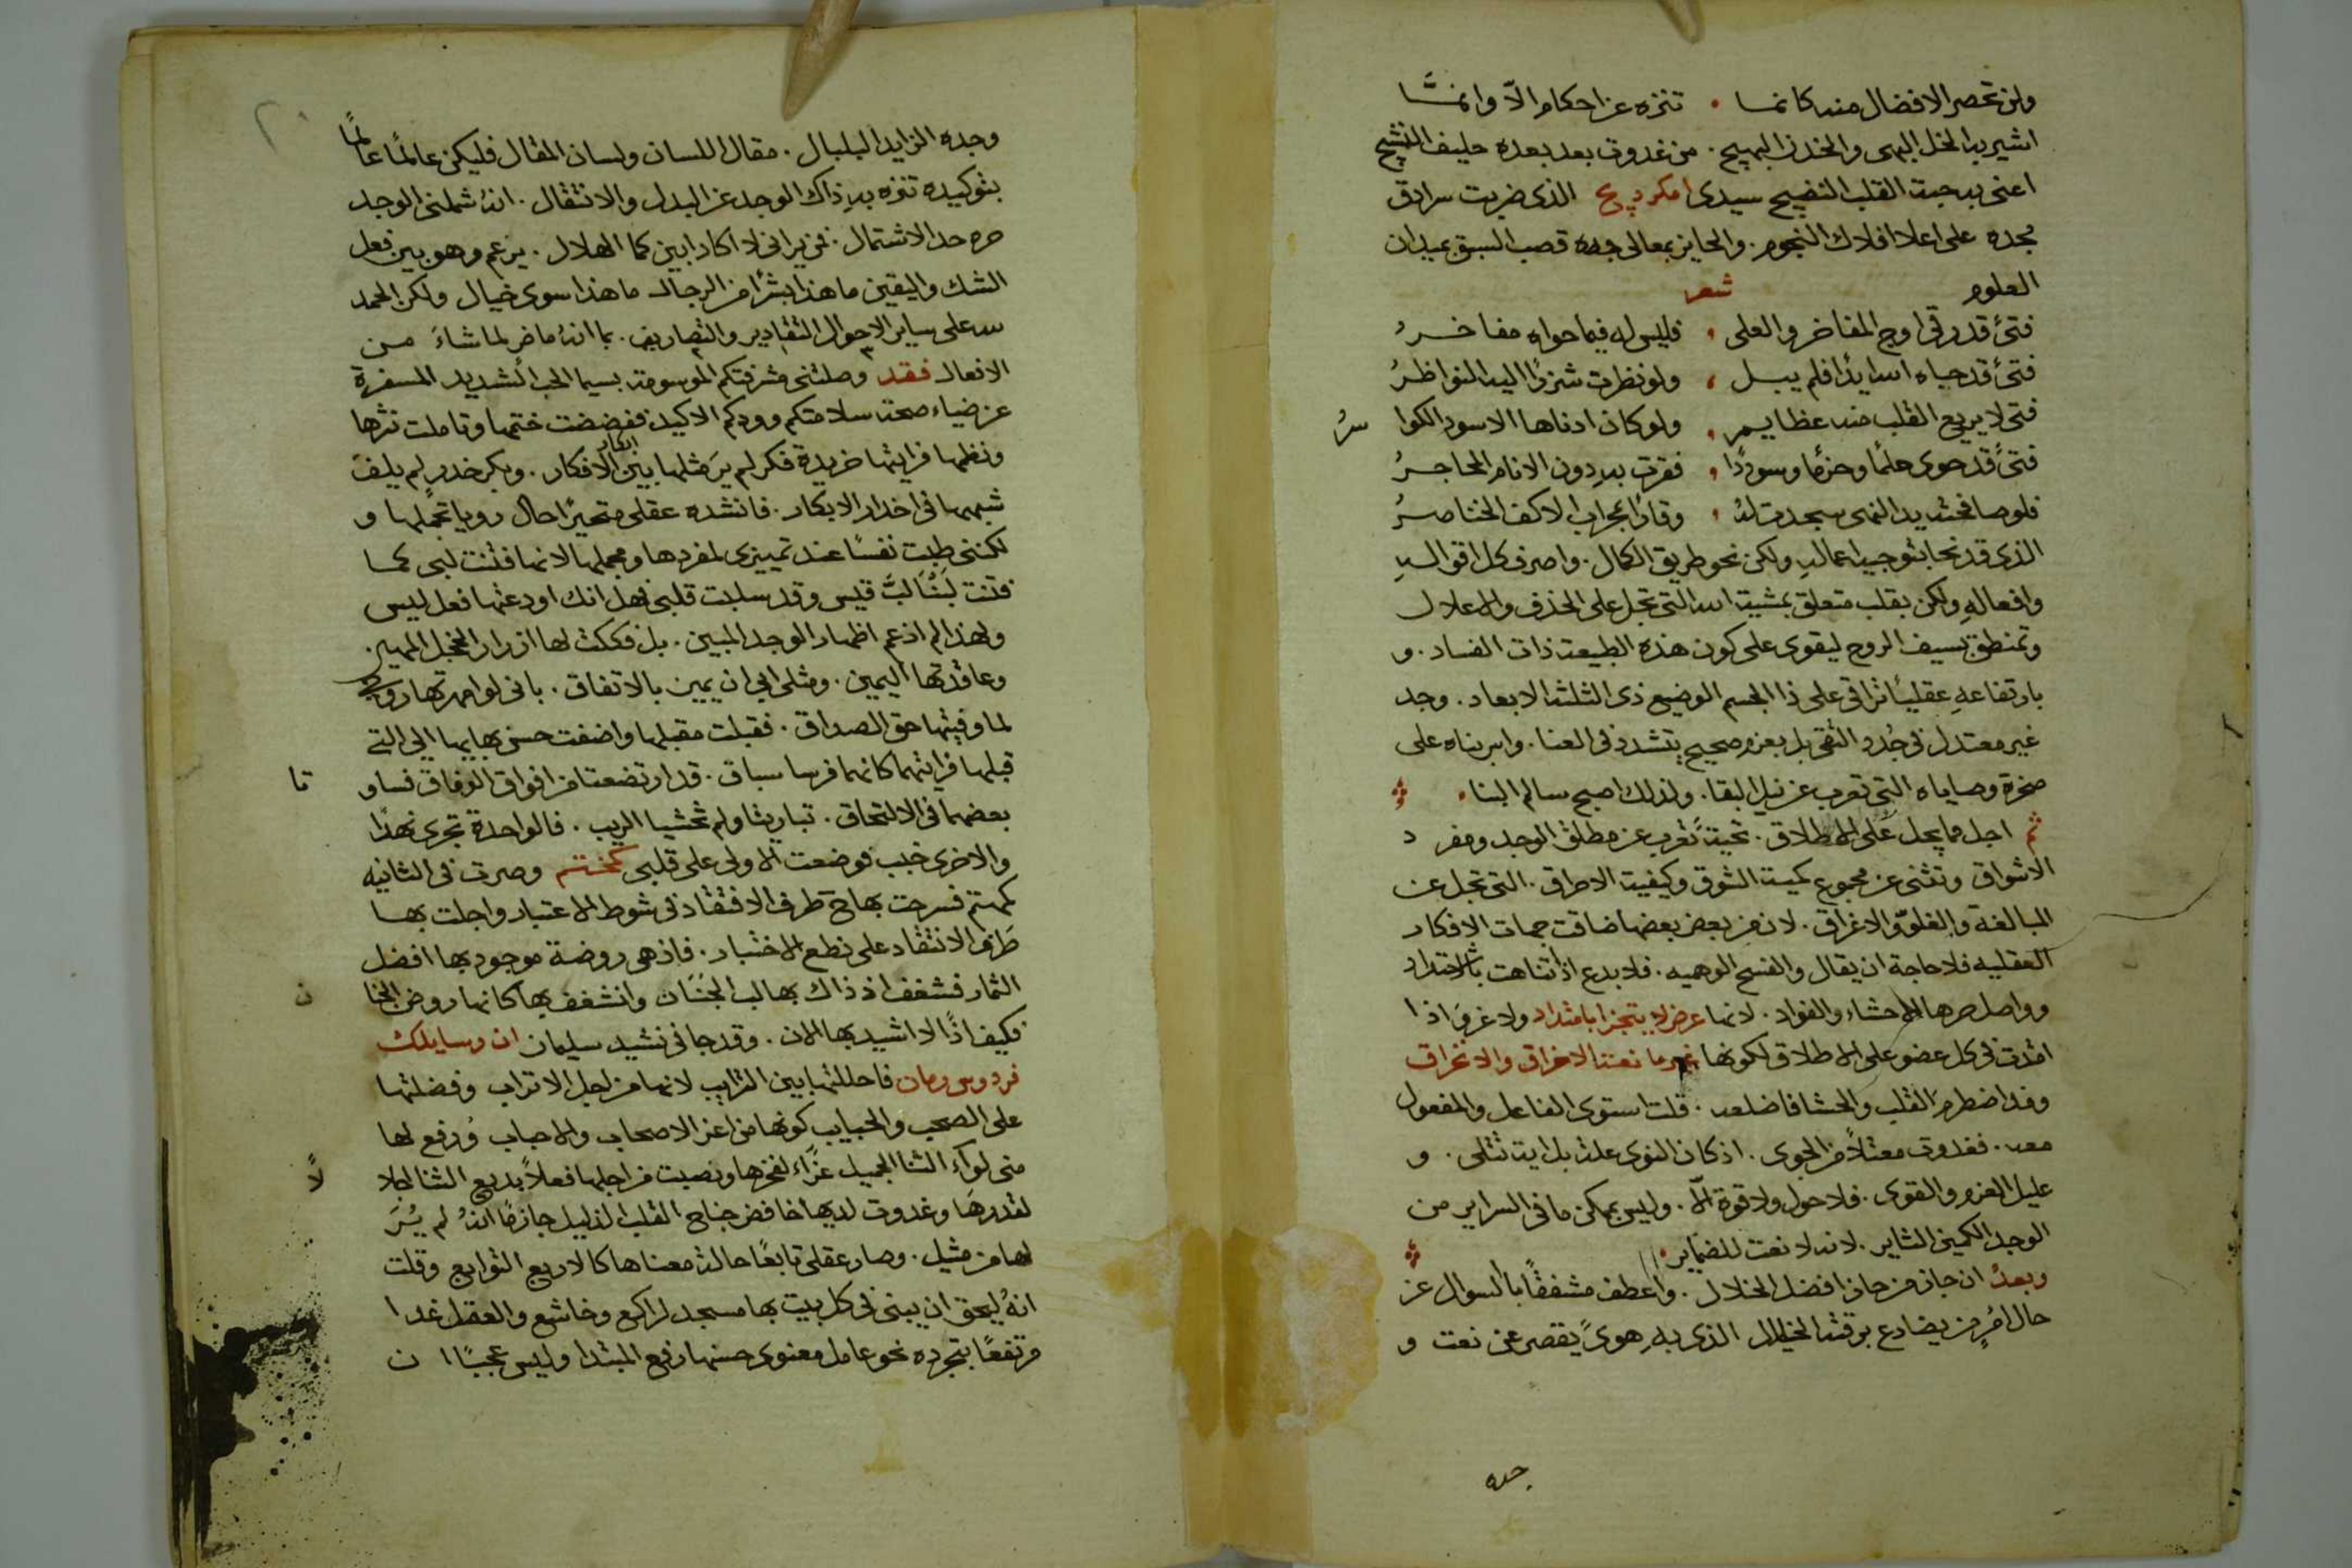 ولن تحصر الافضال منه كانما • تنزه عن احكام الّا وانمَّا
اشير بها لخل البهى والخدن البهيج • من غدوت بعد بعده حليف النشيج
اعنى به حبة القلب النضيج سيدى الذى ضربت سرادق
مجده على اعلا افلاك النجوم • والحايز بمعالى جده قصب السبق بميدان
العلوم شعر
فتىً قد رقى اوج المفاخر والعلى • فليس له فيما حواه مفاخرُ
فتىً قد حباه الله ايدًا فلم يبل • ولو نظرت شزرًا اليه النواظرُ
فتى لا يريع القلب منه عظايم • ولو كان ادناها الاسود الكوا سرُ
فتىً قد حوى حلمًا وحزمًا وسوددًا • فقرت به دون الانام المحاجرُ
فلو صافحته يد النهى سجدت له • وقادًا الاكف الخناصرُ
الذى قد نحا بتوجيه اعماله ولكن نحو طريق الكمال • واصرف كل اقواله
وافعاله ولكن بقلب متعلق بمشية الله التى تجل على الحذف والاعلال
وتمنطق بسيف الروح ليقوى على كون هذه الطبيعة ذات الفساد • و
بارتفاعه عقليًا ترا فى على ذا الجسم الوضيع ذى الثلثة الابعاد • وجد
غير معتدل فى جُدد التقى بل بعزم صحيح يتشدد فى العنا • واس بناه على
صخرة وصاياه التى تعرب عن نيل البقا • ولذلك اصبح سالم البنا •
ثم اجل ما يجل على الاطلاق • تحيةً تعرب عن مطلق الوجد ومفرد
الاشواق وتثنى عن مجموع كمية الشوق وكيفية الاحراق • التى تجل عن
المبالغة والغلوّ والاغراق • لان عن بعض بعضها ضاقت جهات الافكار
العقليه فلا حاجة ان يقال والفسح الوهميه • فلا بدع اذا تناهت بالامتداد
وواصل حرها الاحشاء والفواد • لانها عرض لا يتجزا بامتداد ولا غروَ اذا
امتدت فى كل عضو على الاطلاق لكونها غير مانعتها الاخراق والانخراق
وقد اضطرم القلب والحشا فاضلعه • قلت استوى الفاعل والمفعول
معه • فغدوت معتلاً من الجوى • اذ كان النوى علة بل اية تتلى • و
عليل العزم والقوى • فلا حول ولا قوة الا • وليس يمكن ما فى السراير من
الوجد الكمين الثاير • لانه لا نعت للضماير •
وبعدُ ان جاز من حاز افضل الخلال • واعطف مشفقًا بالسوال عن
حال امرٍ من يضارع برقته الخيال الذى به هوىً يقصر عن نعت و
جده
وجده الزايد البلبال • مقال اللسان ولسان المقال فليكن عالمًا عالمًا
بتوكيده تنزه به ذاك الوجد عن البدل والانتقال • انه شملنى الوجد
حره حد الاشتمال • فمن يرانى لا اكاد ابين كما الهلال • يزعم وهو بين فعل
الشك واليقين ما هذا بشرًا من الرجال ما هذا سوى خيال ولكن الحمد
لله على ساير الاحوال التقادير والتصاريف • بما انه ماض لما شاءَ من
الافعال فقد وصلتنى مشرفتكم الموسومة بسيما الحب الشديد المسفرة
عن ضياء صحة سلامتكم وودكم الاكيد ففضضت ختمها وتاملت نثرها
ونظمها فرايتها خريدة فكر لم يرَ مثلها بين ابكار الافكار • وبكر خدر لم يلفَ
شبهها فى اخدار الابكار • فانشده عقلى متحيرًا حال رويا تجملها و
لكننى طبت نفسًا عند تمييزى لمفردها ومجملها لانها فتنت لبى كما
فتنت لُبنَا لبَّ قيس وقد سلبت قلبى فهل انك اودعتها فعل ليس
ولهذا لم اذعم اظهار الوجد المبين • بل فككت لها ازرار الخجل المهين •
وعاقدتها اليمين • ومثلى ابى ان يمين بالاتفاق • بانى لو امهرتها روحى
لما وفيتها حق الصداق • فقبلت مقبلها واضفت حسن بهايها الى التى
قبلها فرايتهما كانهما فرسا سباق • قد ارتضعتا من افواق الوفاق فساو تا
بعضهما فى الالتحاق • تباريتا ولم تخشيا الريب • فالواحدة تجرى نهدًا
والاخرى خبب فوضعت الاولى على قلبى كختم وصرت فى الثانيه
كمهتم فسرحت بها طرف الافتقاد فى شوط الاعتبار واجلت بها
طَرف الانتقاد على نطع الاختبار • فاذ هى روضة موجود بها افضل
الثمار فشغف اذ ذاك بها لب الجَنَان وانشغف بها كانها روض الجنا ن
فكيف اذًا لا اشيد بها الان • وقد جا فى نشيد سليمان ان رسايلك
فردوس رمان فاحللتها بين الترايب لانها من اجل الاتراب وفضلتها
على الصحب والحبايب كونها من اعز الاصحاب والاحباب ورفع لها
منى لوآء الثنا الجميل عزًاء لفخرها ونصبت من اجلها فعلاً بديع الثنا اجلا لًا
لقدرها وغدوت لديها خافض جناح القلب الذليل جازمًا انهُ لم يُرَ
لها من مثيل • وصار عقلى تابعًا حالة معناها كالاربع التوابع وقلت
انهُ ليحق ان يبنى فى كل بيت بها مسجد لراكع وخاشع والعقل غدا
مرتفعًا بتجرده نحو عامل معنوى حسنها رفع المبتدا وليس عجبًا ان